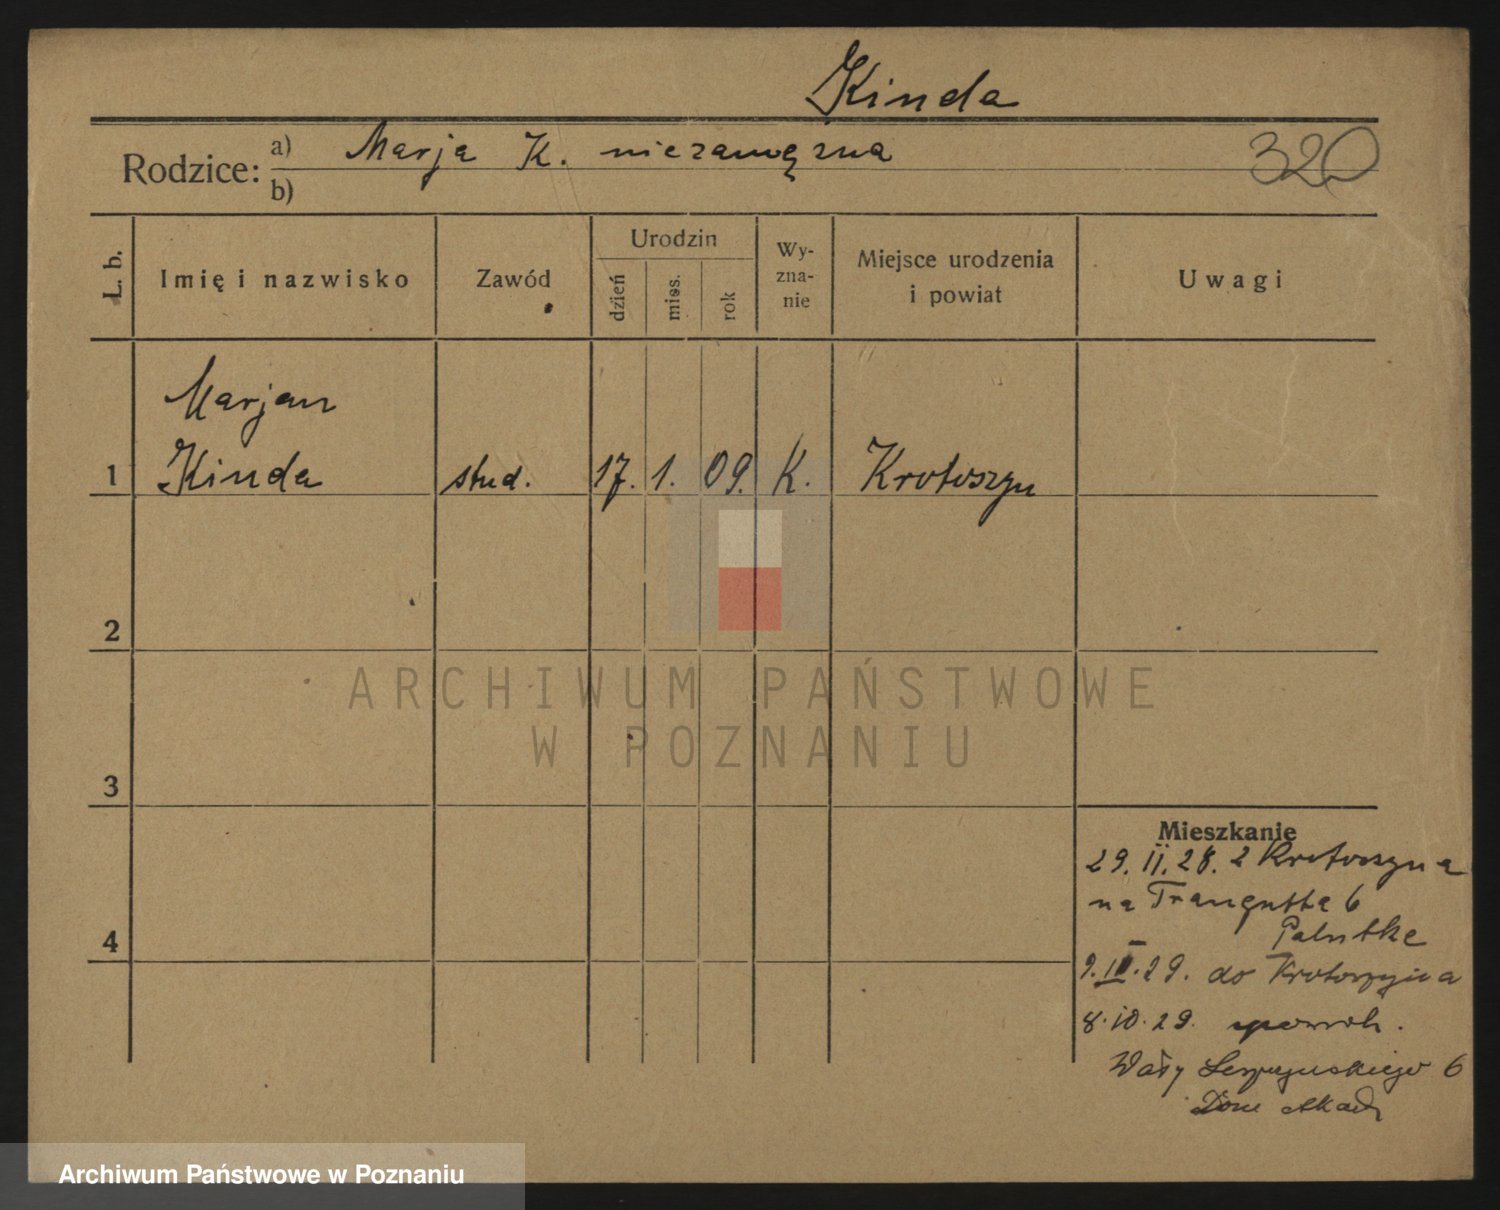 Kinda
Rodzice: a) Marja K. niezamężna
b)
320
L. b.
Imię i nazwisko
Zawód
Urodzin
dzień
mies.
rok
Wy-
zna-
nie
Miejsce urodzenia
i powiat
Uwagi
Marjan
1 Kinda stud. 17. 1. 09. K. Krotoszyn
2
ARCHIWUM PAŃSTWOWE
W POZNANIU
3
4
Mieszkanie
29. II. 28. z Krotoszyna
na Traugutta 6
9. 29. do Krotoszyna
8. 10. 29.
Wały Leszczyńskiego 6
Dom Akad
Archiwum Państwowe w Poznaniu